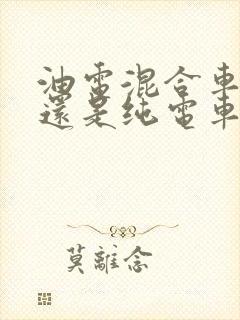 油電混合車
還是純電車
莫離念